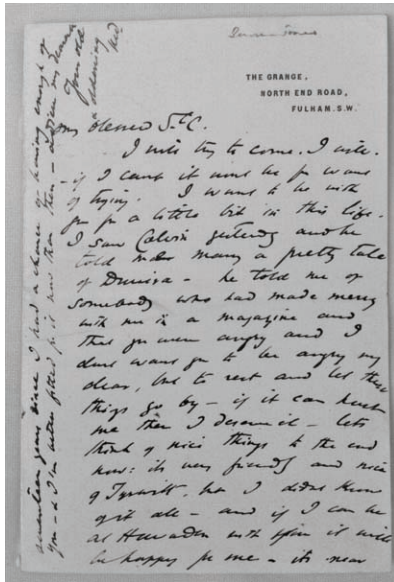 Burne-Jones
THE GRANGE,
NORTH END ROAD,
FULHAM. S.W.
My blessed St C.
I will try to come. I will.
- if I cant it wont be for want
of trying. I want to be with
you for a little bit in this life.
I saw Colvin yesterday and he
told me many a pretty tale
of - he told me of
somebody who had made merry
with me in a magazine and
that you were angry and I
dont want you to be angry my
dear, but to rest and let these
things go by - if it can hurt
me then I deserve it - lets
think of nice things to the end
now: its very friendly and nice
of Tyrwhitt, but I didnt know
of it all - and if I can be
at Hawarden with you it will
be happy for me - its near
seventeen years since I had a chance of having enough of
you - & I'm better fitted for it now than then - my dear
Your old